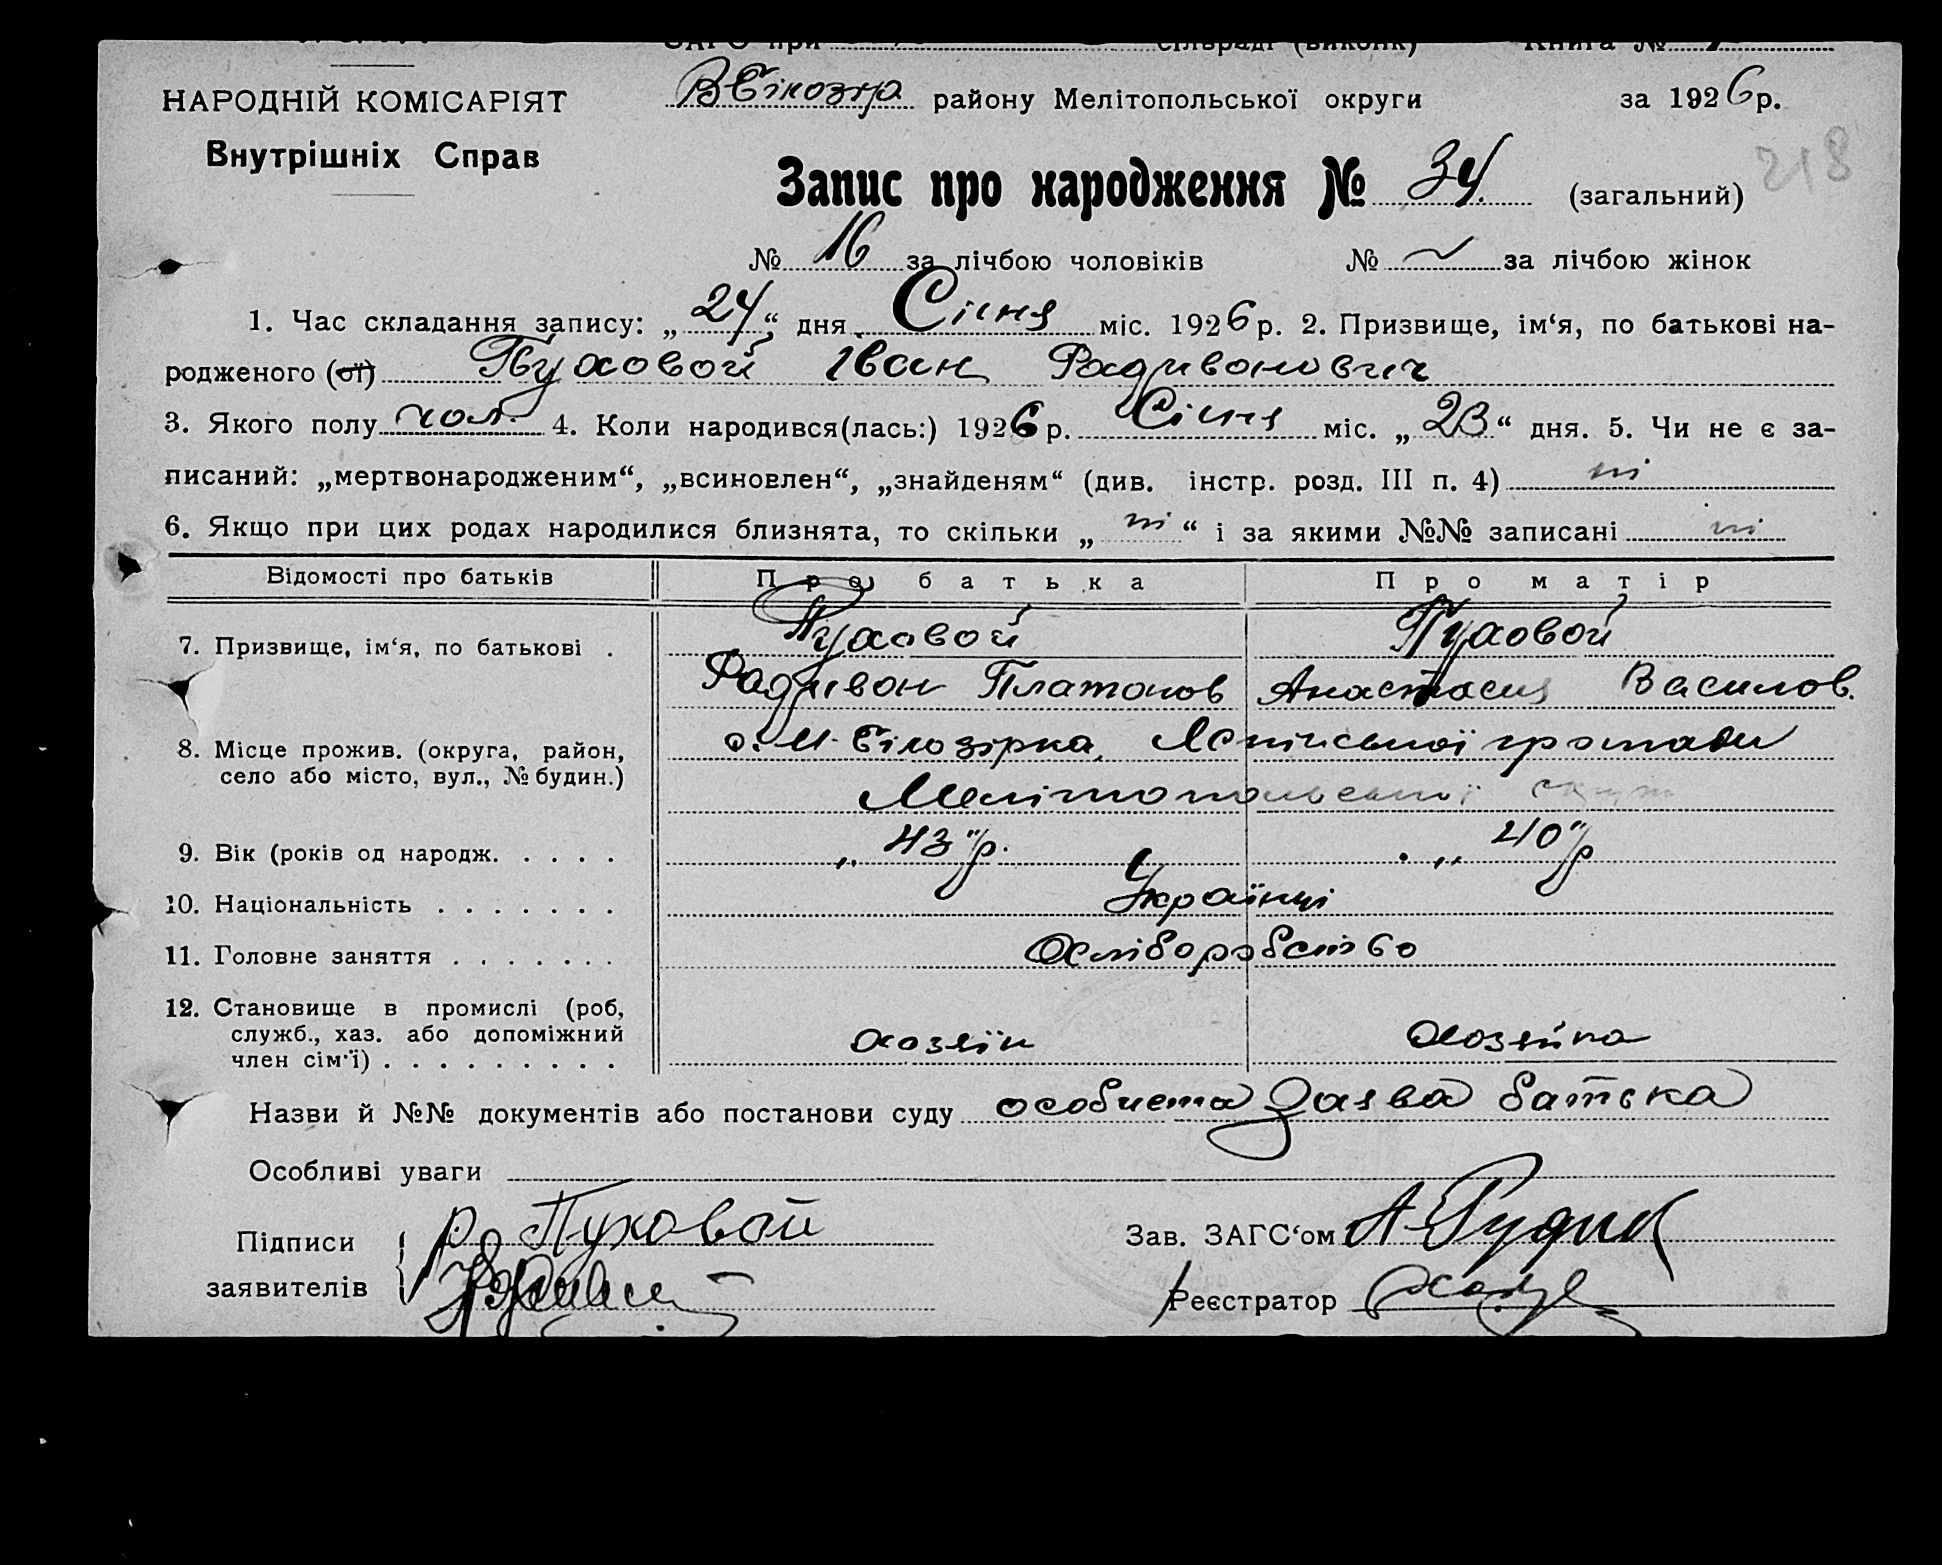 ЗАГС при сільраді (виконк) Книга №
НАРОДНІЙ КОМІСАРІЯТ В Білозір. району Мелітопольської округи за 1926 р.
Внутрішніх Справ
218
Запис про народження № 34. (загальний)
№ 16 за лічбою чоловіків № за лічбою жінок
1. Час складання запису: „24“ дня Січня міс. 1926 р. 2. Призвище, ім‘я, по батькові на-
родженого (ої) Пуховой Іван Радивонович
3. Якого полу чол. 4. Коли народився(лась:) 1926 р. Січня міс. „23“ дня. 5. Чи не є за-
писаний: „мертвонародженим“, „всиновлен“, „знайденям“ (див. інстр. розд. III п. 4) ні
6. Якщо при цих родах народилися близнята, то скільки „ні“ і за якими №№ записані ні
Відомості про батьків Про батька Про матір
7. Призвище, ім‘я, по батькові . Пуховой Пуховой
Радивон Платонов Анастасия Василов.
8. Місце прожив. (округа, район, с. М. Білозірка, громади
село або місто, вул., № будин.) Мелітопольської округ
9. Вік (років од народж. . . . . „ 43 "/р. „ 40 "/р
10. Національність . . . . . . . Українці
11. Головне заняття . . . . . . . Хліборобство
12. Становище в промислі (роб,
служб., хаз. або допоміжний хозяїн хозяйка
член сім‘ї) . . . . . . . . .
Назви й №№ документів або постанови суду особиста заява батька
Особливі уваги
Підписи Р. Пуховой Зав. ЗАГС‘ом А. Рудик
заявителів Реєстратор